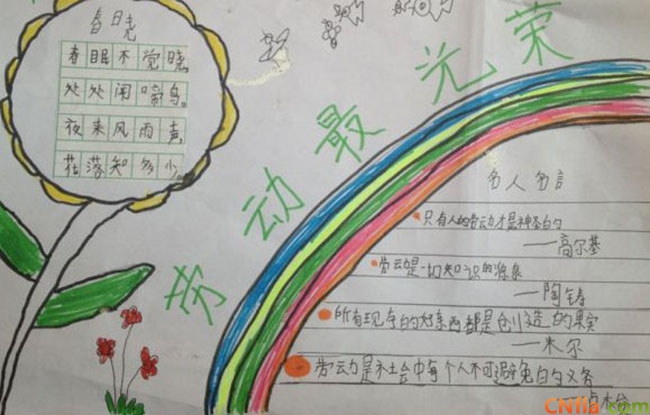 春晓
春眠不觉晓,
处处闻啼鸟。
夜来风雨声,
花落知多少。
劳动最光荣
名人名言
只有人的劳动才是神圣的
——高尔基
劳动是一切知识的源泉
——陶铸
所有现存的好东西都是创造的果实
——米尔
劳动是社会中每个人不可避免的义务
卢木公
CNfla.com